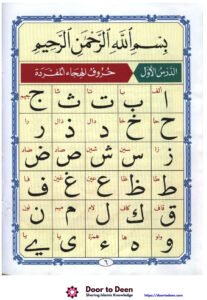 بِسْمِ اللهِ الرَّحْمٰنِ الرَّحِيْمِ
الدَّرْسُ الأَوَّلُ حُرُوفُ الهِجَاءِ المُفْرَدَة
ا ب ت ث ج
ح خ د ذ ر
ز س ش ص ض
ط ظ ع غ ف
ق ك ل م ن
و ه ء ي ے
Door to Deen
Sharing Islamic Knowledge
https://doortodeen.com